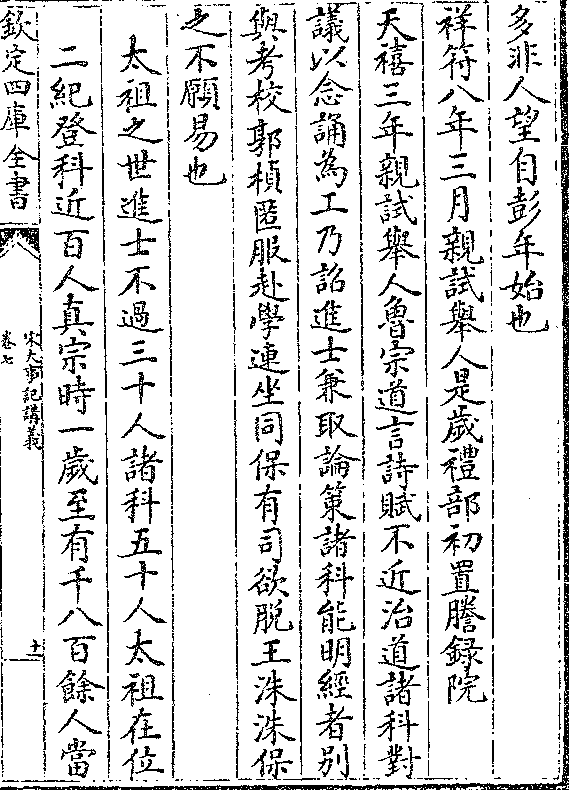 多非人望自彭年始也
祥符八年三月親試舉人是歲禮部初置謄録院
天禧三年親試舉人魯宗道言詩賦不近治道諸科對
議以念誦為工乃詔進士兼取論策諸科能明經者别
與考校郭楨匿服赴學連坐同保有司欲脱王洙洙保
之不願易也
太祖之世進士不過三十人諸科五十人太祖在位
二紀登科近百人真宗時一歲至有千八百餘人當
欽定四庫全書
宋大事記講義
卷七
十